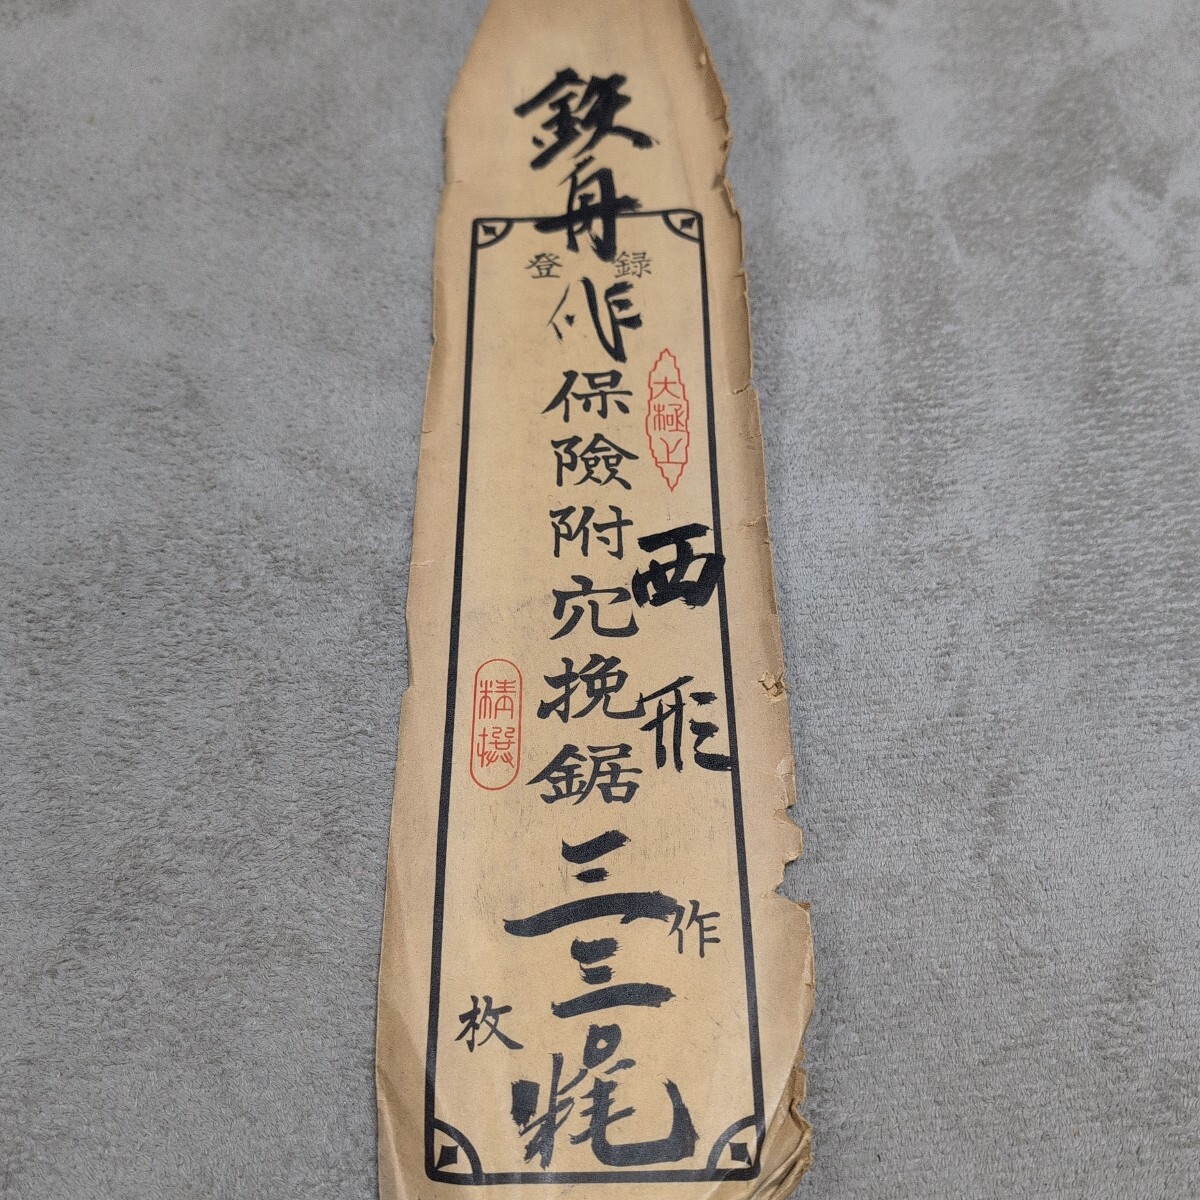 鉄舟
登録
作
保險附穴挽鋸
三三〇粍
大極上
西形
作
精撰
枚